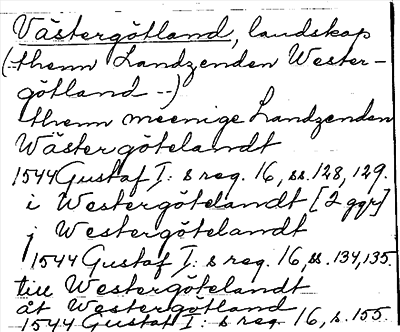 Västergötland, landskap
(thenn Landzenden Wester-
götland --)
thenn meenige Landzenden
Wästergötelandt
1544 Gustaf I: s reg. 16, ss. 128, 129.
i Westergötelandt [2 ggr]
j Westergötelandt
1544 Gustaf I: s reg. 16, ss. 134, 135
till Westergötelandt
åt Westergötland
1544 Gustaf I: s reg. 16, s. 155.